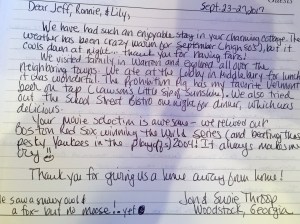 Sept. 23-27, 2017
Dear Jeff, Ronnie, & Lily,
We have had such an enjoyable stay in your charming cottage. The
weather has been crazy warm for September (high 80's), but it
cools down at night... thank you for having fans!
We visited family in Warren and explored all over the
neighboring towns. We ate at the Lobby in Middlebury for lunch
it was wonderful. The Prohibition Pig has my favorite Vermont
beer on tap (Lawson's Little Sip of Sunshine). We also tried
out The School Street Bistro one night for dinner, which was
delicious.
Your movie selection is awesome - we relived our
Boston Red Sox winning the World Series (and beating those
pesty Yankees in the playoffs) 2004! It always makes me
Thank you for giving us a home away from home!
saw a snowy owl &
a fox - but no moose... yet
Jon & Susie Throop
Woodstock, Georgia